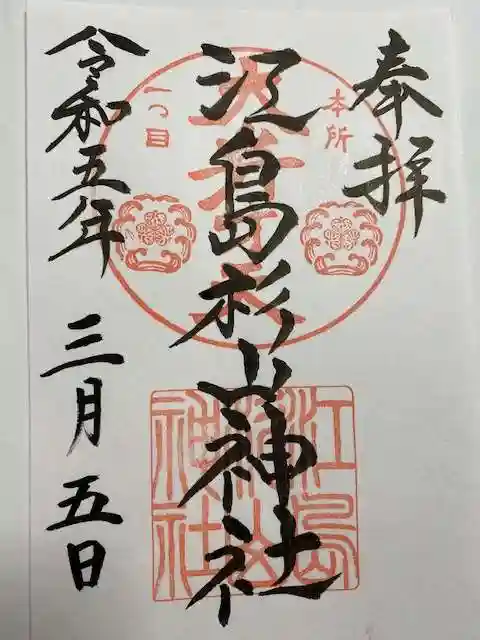 奉拝
本所
一つ目
江島杉山神社
江島
杉山
神社
令和五年 三月五日